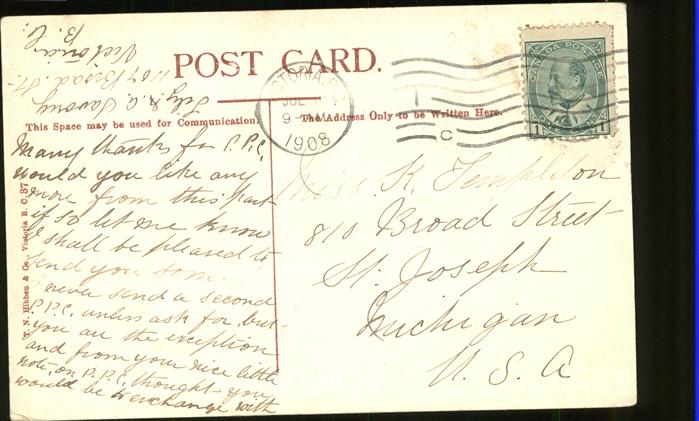 POST CARD.
This Space may be used for Communication.
The Address Only to be Written Here.
CANADA POSTAGE
1
1
VICTORIA, B.C.
JUL
9-
1908
C
Many thanks for P.P.C.
would you like any
more from this part
if so let me know
I shall be pleased to
send you some
never send a second
P.P.C. unless ask for, but
you are the exception
and from your nice little
note, on P.P.C. thought you
would be to exchange with
Lily A. A. Savory
1167 Broad St.
Victoria
B.C.
Miss K. Templeton
810 Broad Street
St. Joseph
Michigan
U.S.A
T. N. Hibben & Co., Victoria B. C. 37